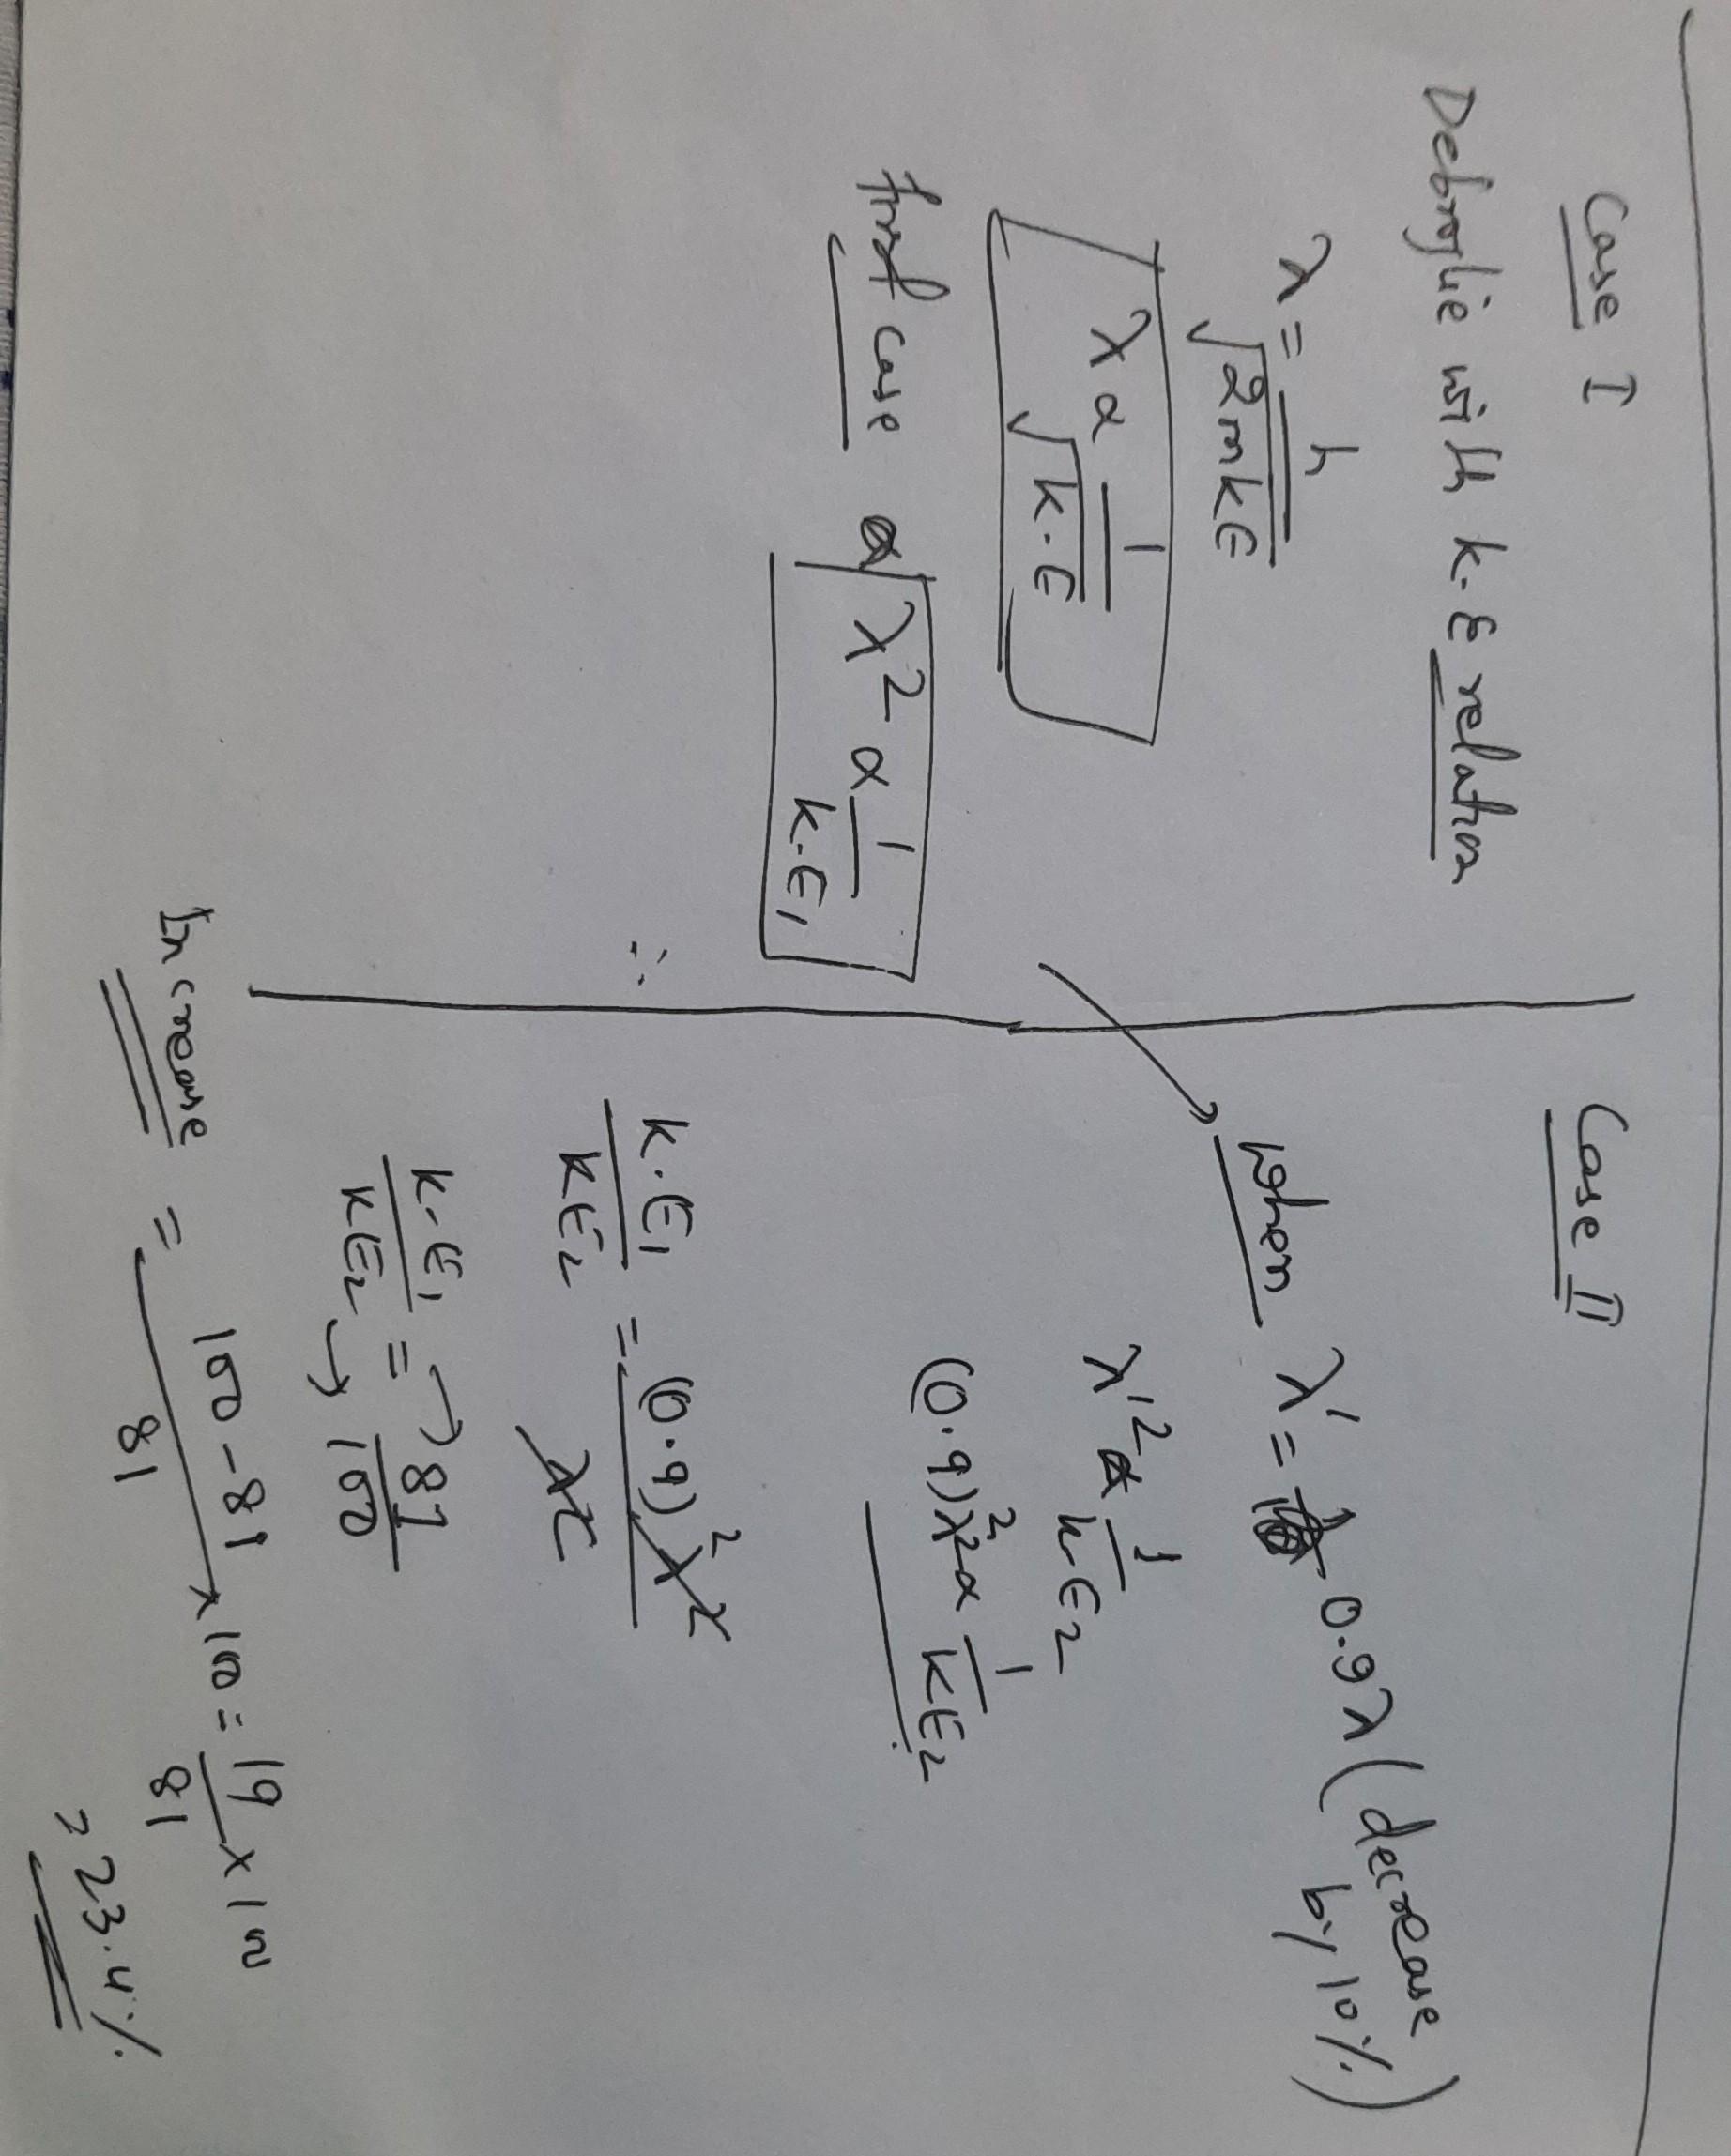 Case I
Debroglie with k.E relation
λ = h / √2mkE
λ α 1 / √k.E
first case α λ² α 1 / k.E₁
Case II
when λ' = 0.9λ (decrease
by 10%)
λ'² α 1 / k.E₂
(0.9)²λ² α 1 / KE₂
∴ k.E₁ / KE₂ = (0.9)²λ² / λ²
k.E₁ / KE₂ = 81 / 100
Increase = 100 - 81 / 81 × 100 = 19 / 81 × 100
= 23.4%